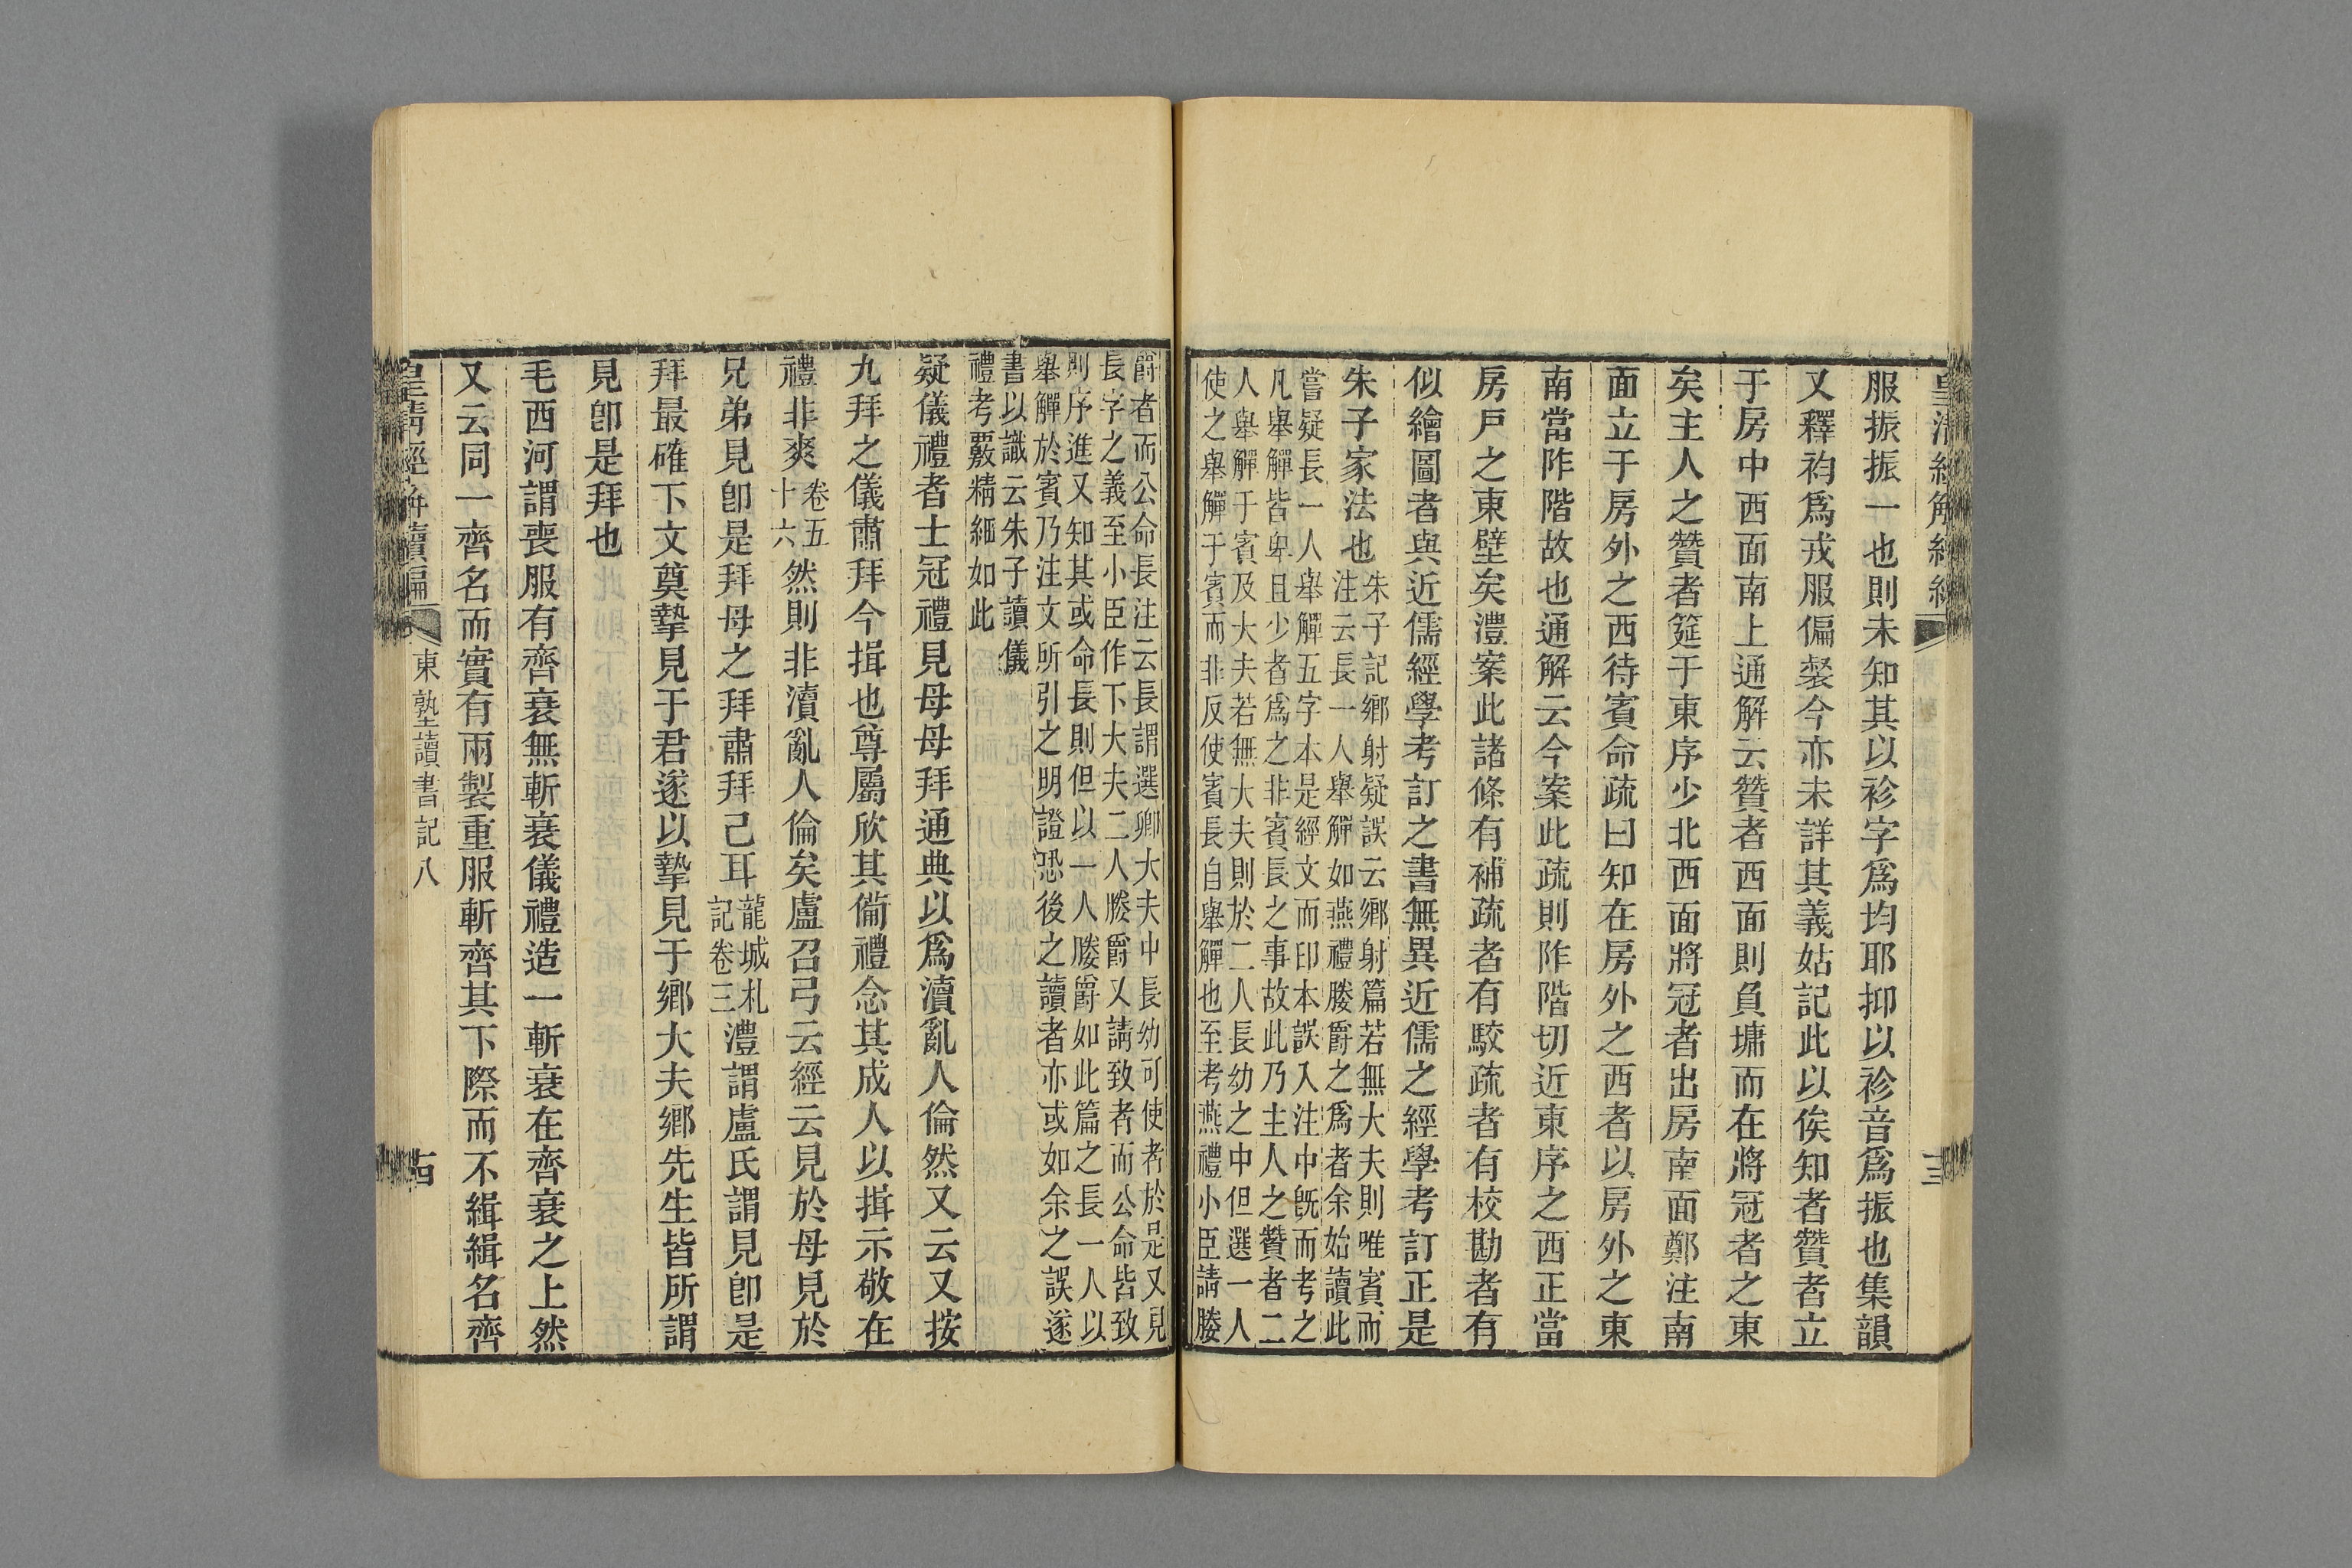 服振振一也則未知其以袗字爲均耶抑以袗音爲振也集韻
又釋袀爲戎服偏裻今亦未詳其義姑記此以俟知者贊者立
于房中西面南上通解云贊者西面則負墉而在將冠者之東
矣主人之贊者筵于東序少北西面將冠者出房南面鄭注南
面立于房外之西待賓命疏曰知在房外之西者以房外之東
南當阼階故也通解云今案此疏則阼階切近東序之西正當
房戶之東壁矣澧案此諸條有補疏者有駮疏者有校勘者有
似繪圖者與近儒經學考訂之書無異近儒之經學考訂正是
朱子家法也
朱子記鄉射疑誤云鄉射篇若無大夫則唯賓而
注云長一人舉觶如燕禮媵爵之爲者余始讀此
嘗疑長一人舉觶五字本是經文而印本誤入注中旣而考之
凡舉觶皆卑且少者爲之非賓長之事故此乃主人之贊者二
人舉觶于賓及大夫若無大夫則於二人長幼之中但選一人
使之舉觶于賓而非反使賓長自舉觶也至考燕禮小臣請媵
爵者而公命長注云長謂選卿大夫中長幼可使者於是又見
長字之義至小臣作下大夫二人媵爵又請致者而公命皆致
則序進又知其或命長則但以一人媵爵如此篇之長一人以
舉觶於賓乃注文所引之明證恐後之讀者亦或如余之誤遂
書以識云朱子讀儀
禮考覈精細如此
疑儀禮者士冠禮見母母拜通典以爲瀆亂人倫然又云又按
九拜之儀肅拜今揖也尊屬欣其備禮念其成人以揖示敬在
禮非爽卷五十六然則非瀆亂人倫矣盧召弓云經云見於母見於
兄弟見卽是拜母之拜肅拜己耳龍城札記卷三澧謂盧氏謂見卽是
拜最確下文奠摯見于君遂以摯見于鄉大夫鄉先生皆所謂
見卽是拜也
毛西河謂喪服有齊衰無斬衰儀禮造一斬衰在齊衰之上然
又云同一齊名而實有兩製重服斬齊其下際而不緝緝名齊
皇清經解續編
東塾讀書記八
十四